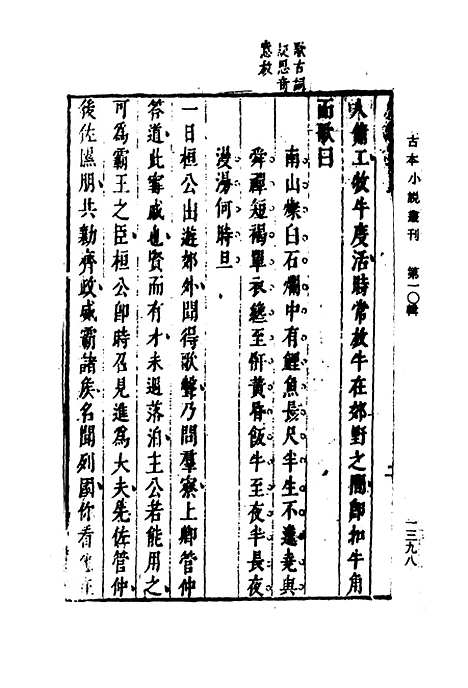 古本小説叢刊 第一〇輯
一三九八
歌古詞
意致
人傭工牧牛度活時常放牛在郊野之間卽扣牛角
而歌曰
南山燦白石爛中有鯉魚長尺半生不遭堯與
舜禪短褐單衣纔至骭黃昏飯牛至夜半長夜
漫漫何時旦
一日桓公出遊郊外聞得歌聲乃問羣寮上卿管仲
答道此甯戚也賢而有才未遇落泊主公若能用之
可爲霸王之臣桓公卽時召見進爲大夫先佐管仲
後佐隰朋共勷齊政威霸諸侯名聞列國你看